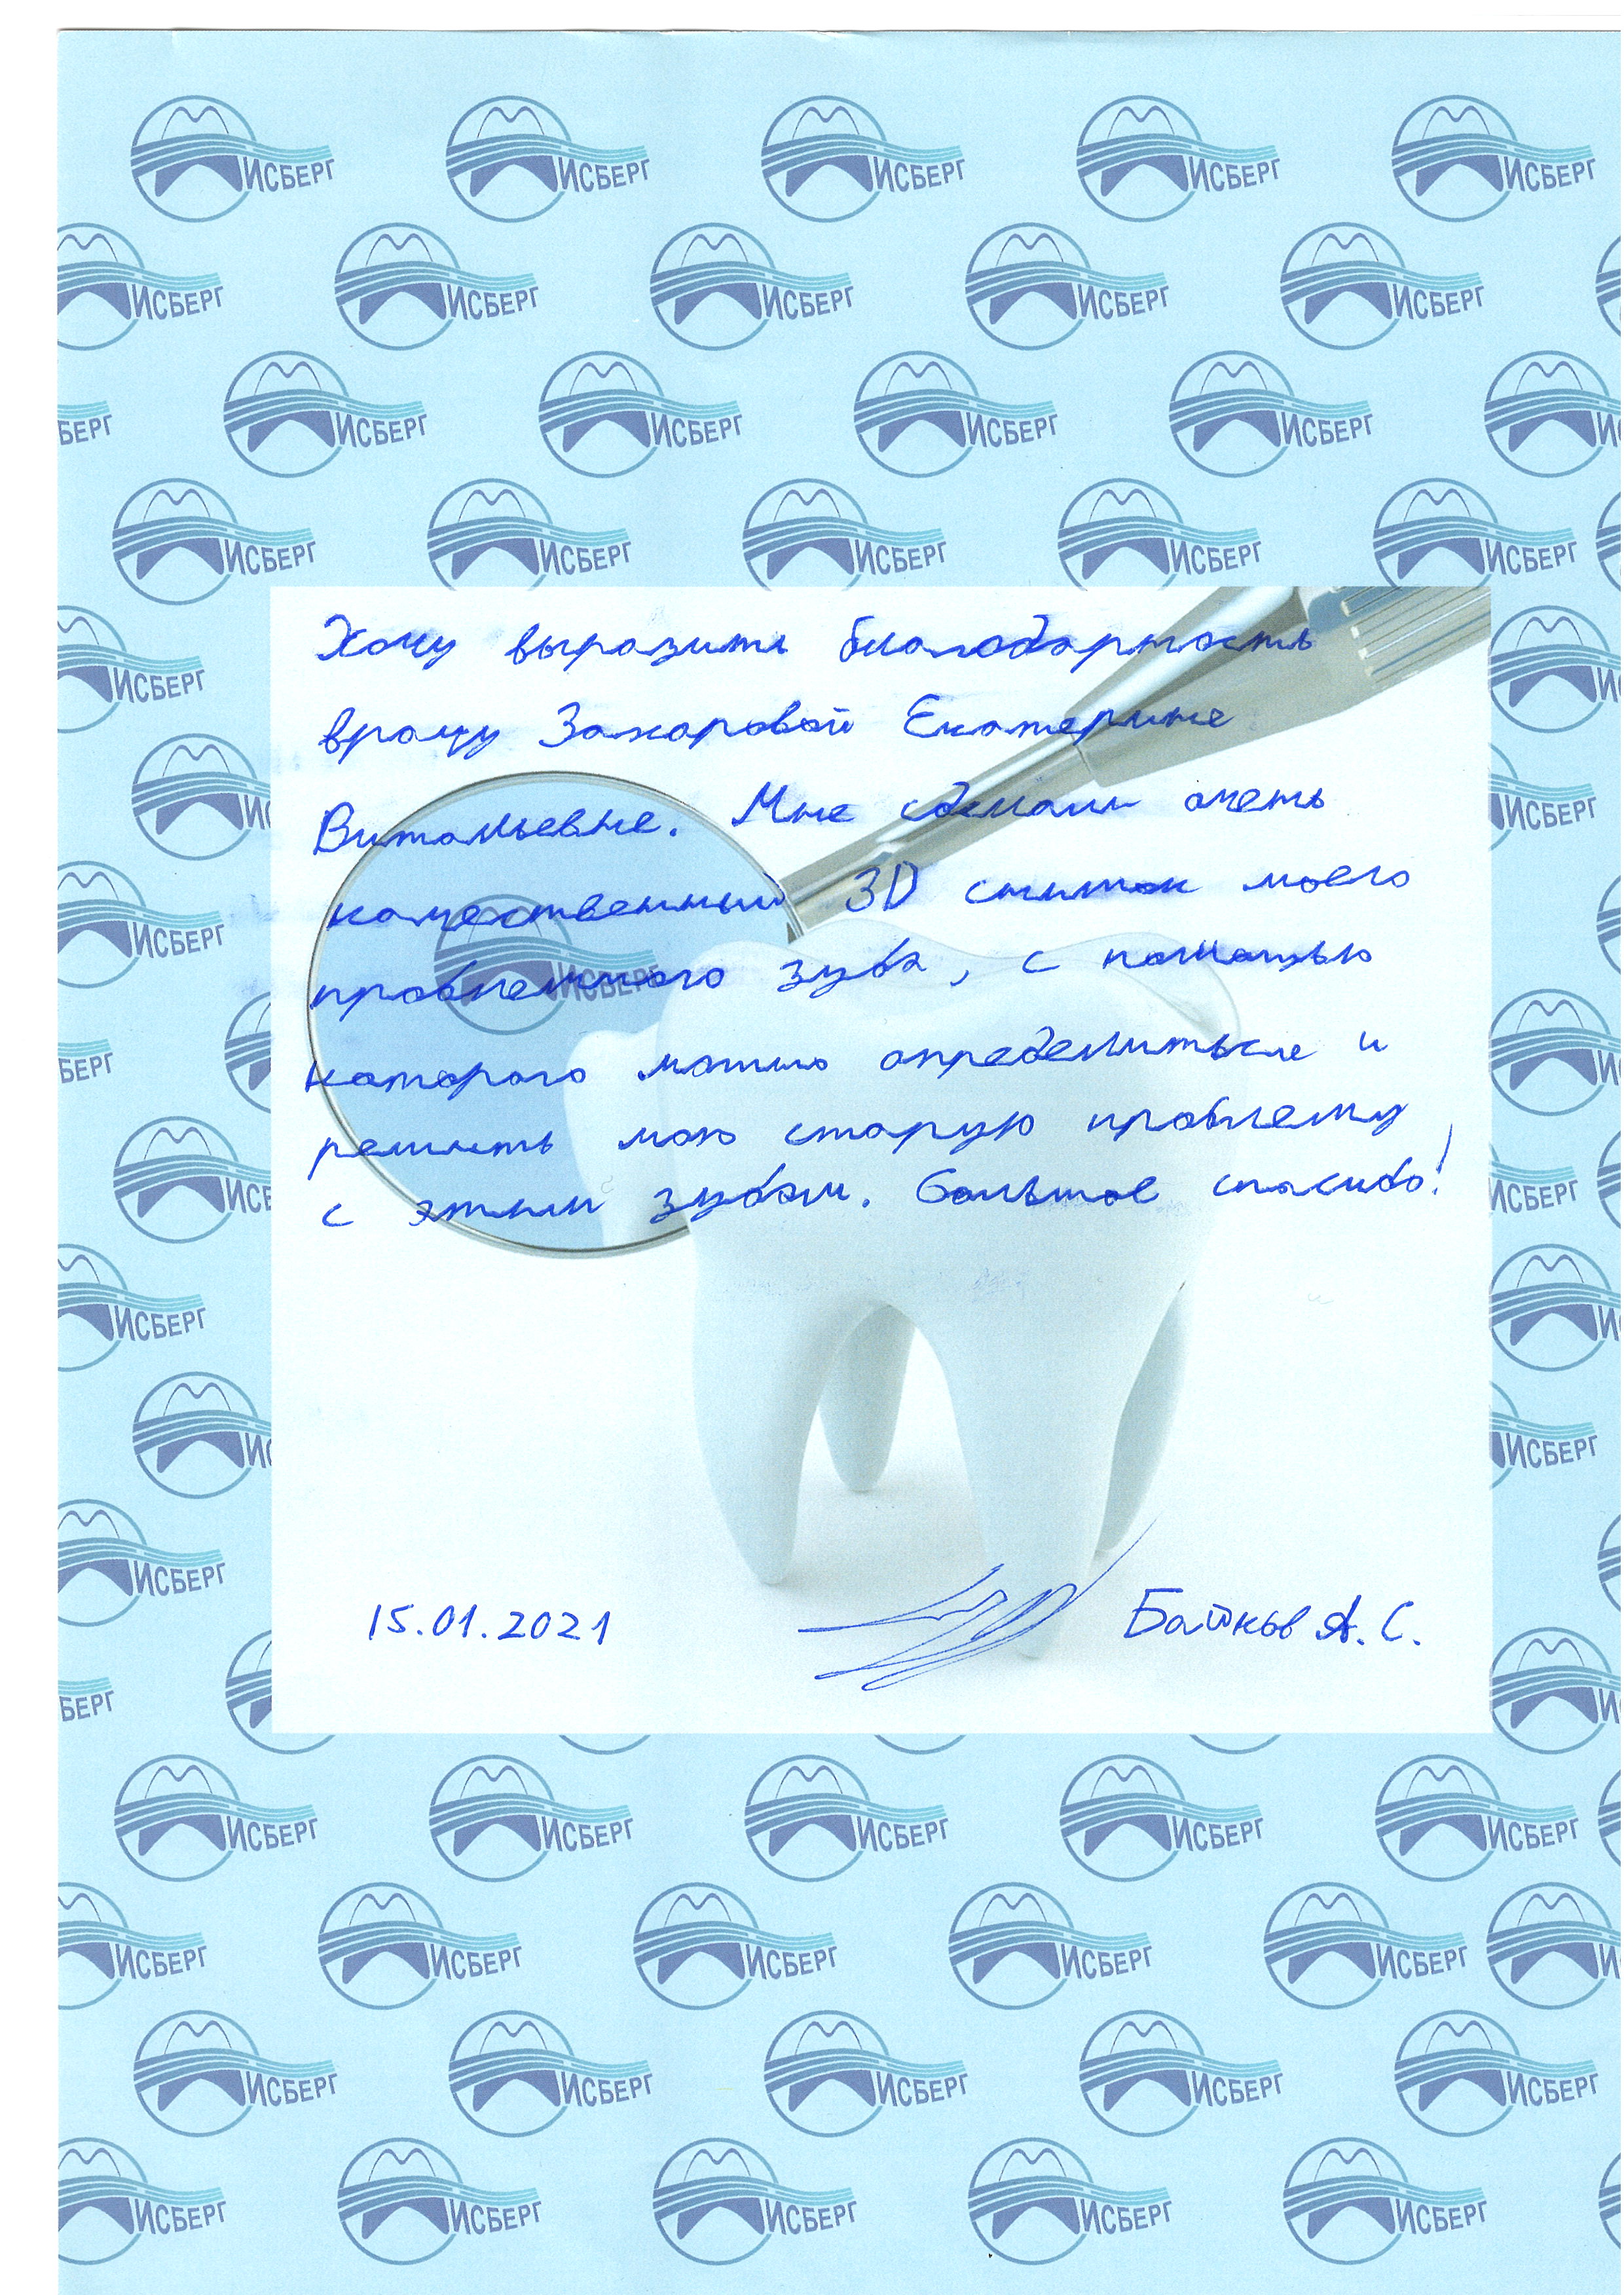 Хочу выразить благодарность
врачу Захаровой Екатерине
Витальевне. Мне сделали очень
качественный 3D снимок моего
проблемного зуба, с помощью
которого можно определиться и
решить мою старую проблему
с этим зубом. Большое спасибо!
15.01.2021 Байков А. С.
ИСБЕРГ